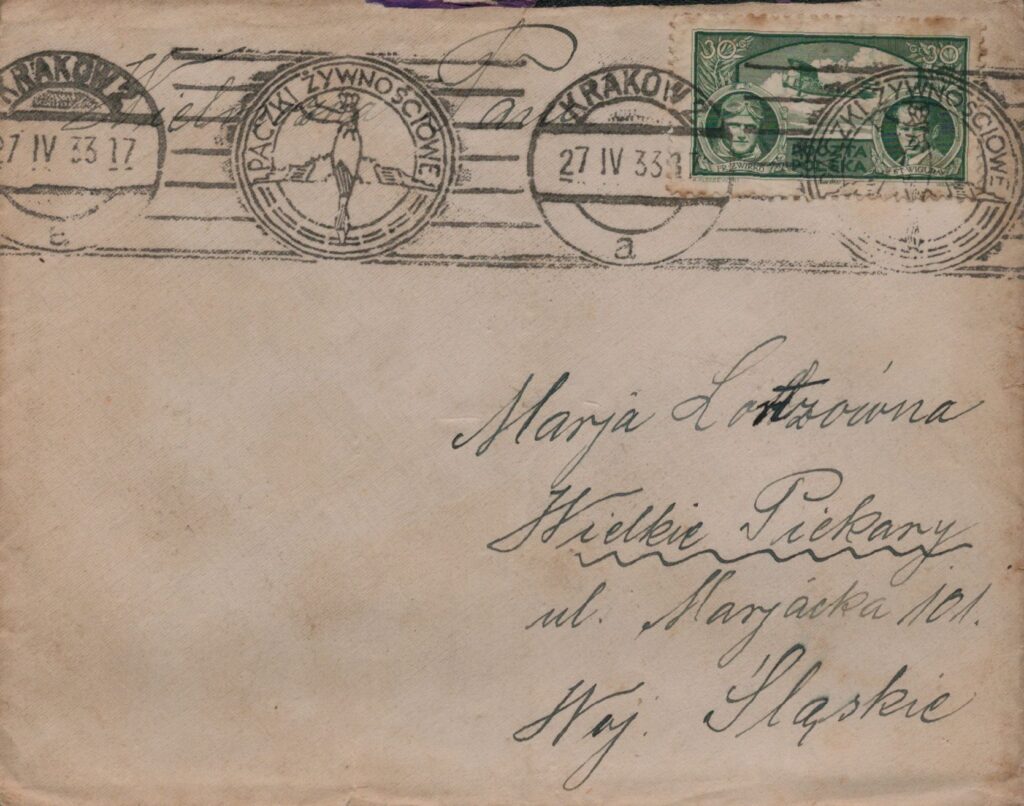 KRAKOW 2
27 IV 33 17
PACZKI ŻYWNOŚCIOWE
KRAKOW
27 IV 33
a
30 30
PACZKI ŻYWNOŚCIOWE
Wielmożna Panna
Marja Lortzówna
Wielkie Piekary
ul. Marjacka 101.
Woj. Śląskie